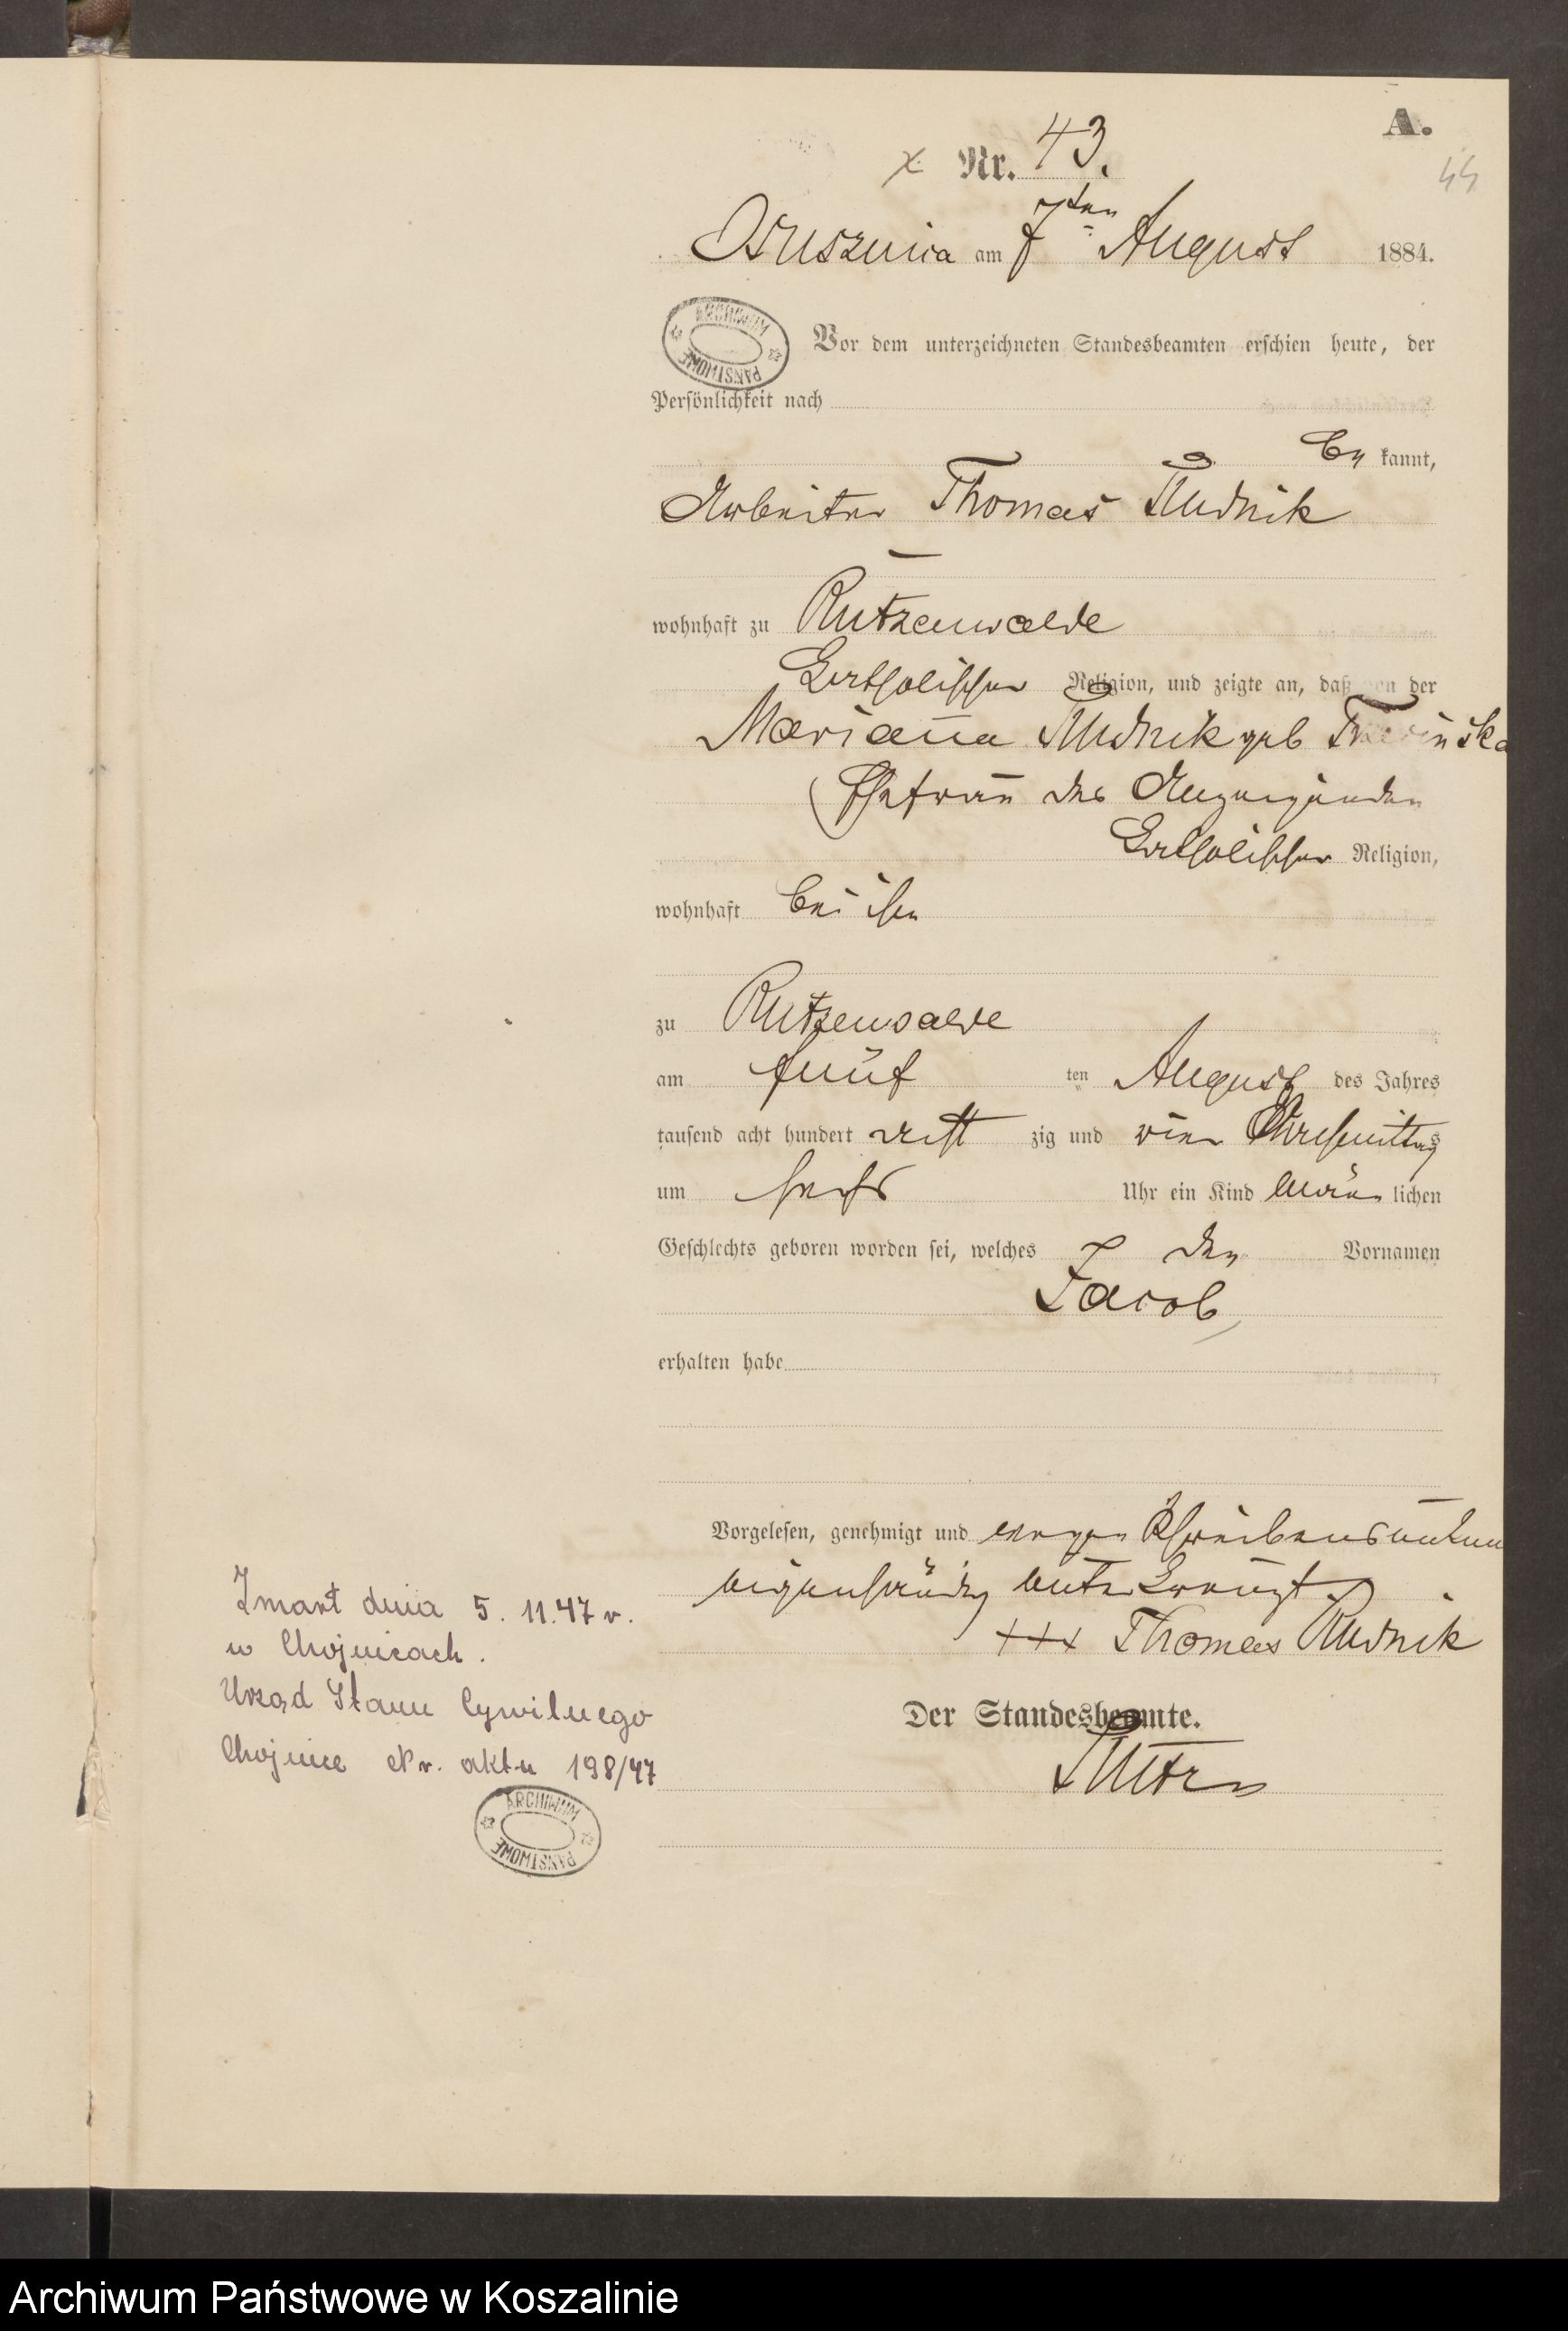 A.
Nr. 43.
44
Ossuszniza am 7ten August 1884.
ARCHIWUM
PAŃSTWOWE
Vor dem unterzeichneten Standesbeamten erschien heute, der
Persönlichkeit nach
be kannt,
Arbeiter Thomas Rudnik
wohnhaft zu Rutzenwalde
katholischer Religion, und zeigte an, daß von der
Marianna Rudnik geb
Ehefrau des Anzeigenden
katholischer Religion,
wohnhaft bei ihm
zu Rutzenwalde
am fünf ten August des Jahres
tausend acht hundert acht zig und vier Nachmittags
um sechs Uhr ein Kind männ lichen
Geschlechts geboren worden sei, welches den Vornamen
Jacob
erhalten habe
Vorgelesen, genehmigt und wegen Schreibensunkun
eigenhändig unterkreuzt
+++ Thomas Rudnik
Der Standesbeamte.
Zmarł dnia 5. 11. 47 r.
w Chojnicach.
Urząd Stanu Cywilnego
Chojnice Nr. aktu 198/47
ARCHIWUM
PAŃSTWOWE
Archiwum Państwowe w Koszalinie